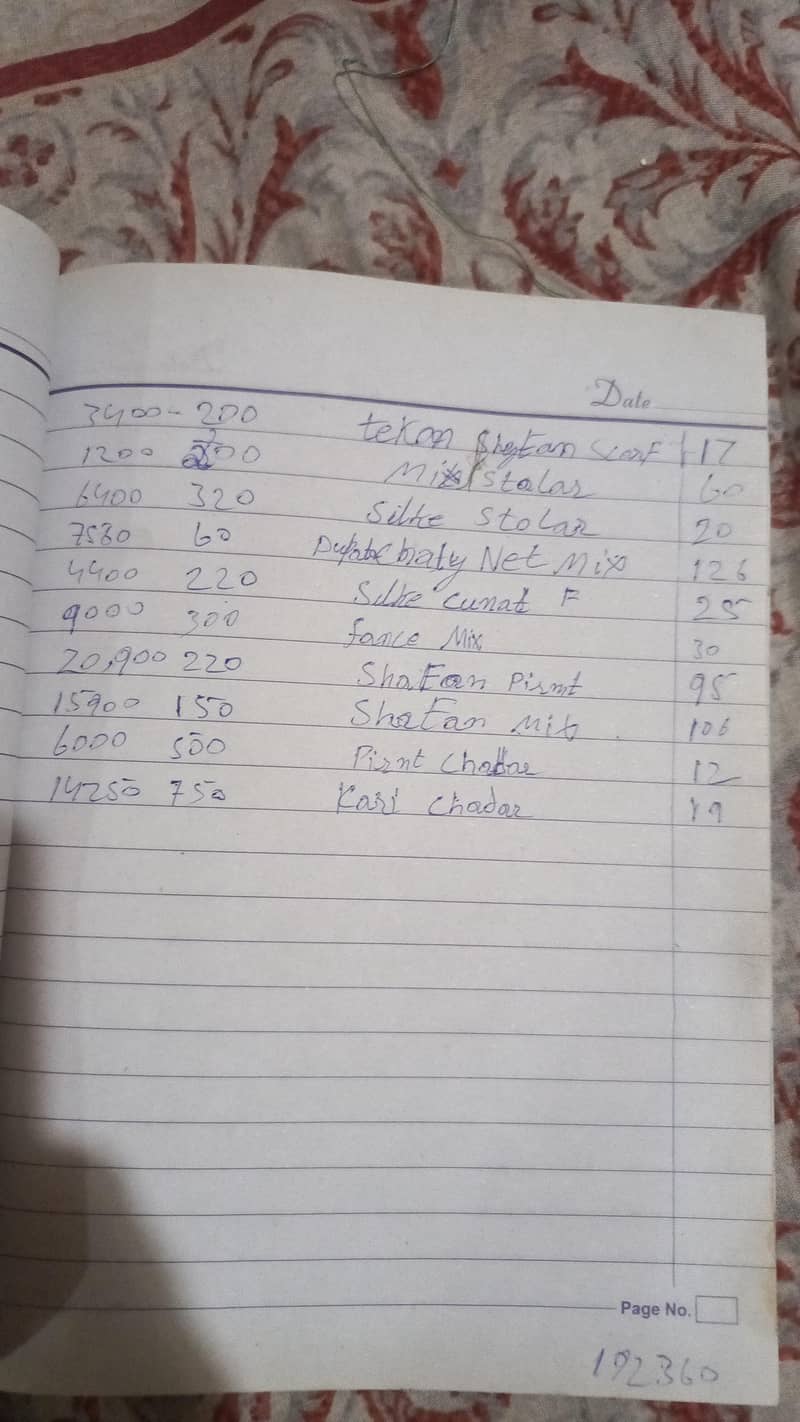 Date
3400 - 200 tekon Shatan scarf 17
1200 200 Mix Stalar 60
6400 320 Silke Stolar 20
7560 60 baly Net Mix 126
4400 220 Silke cunat F 25
9000 300 fance Mix 30
20,900 220 Shatan Pirnt 95
15900 150 Shatan Mix 106
6000 500 Pirnt Chadar 12
14250 750 Kari Chadar 19
Page No.
192360